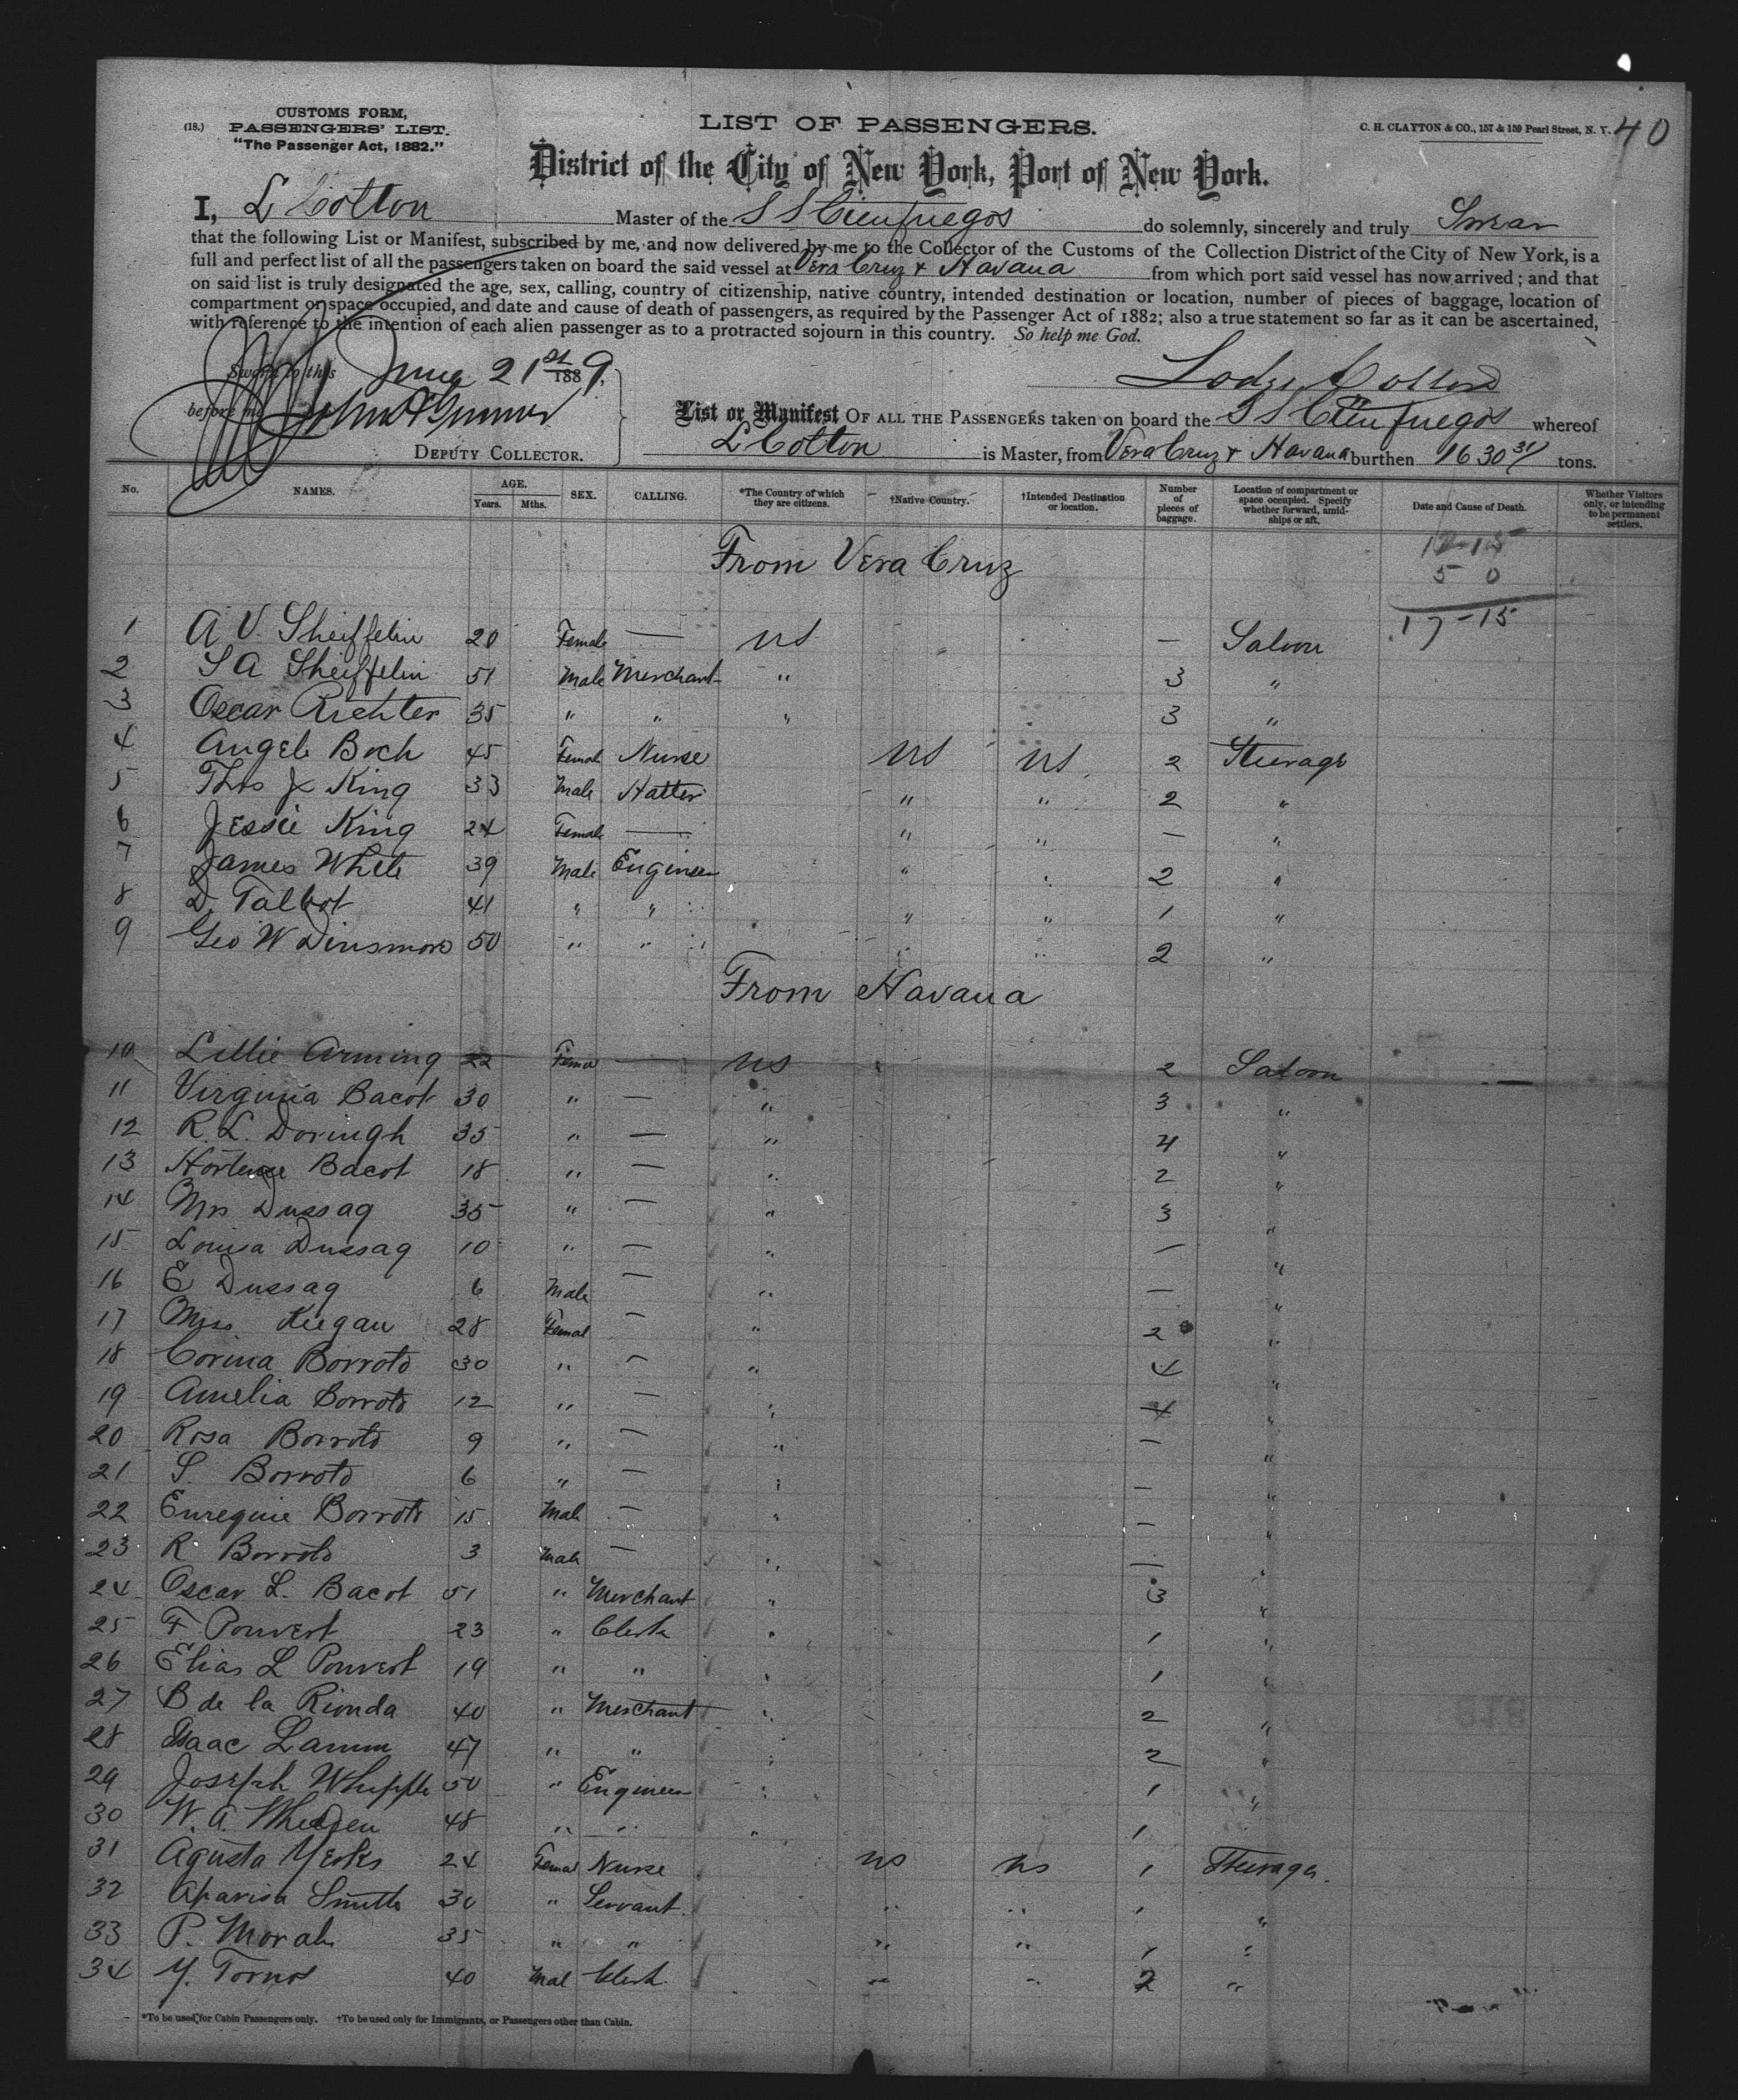 CUSTOMS FORM,
(18.) PASSENGERS' LIST.
"The Passenger Act, 1882."
LIST OF PASSENGERS.
C. H. CLAYTON & CO., 157 & 159 Pearl Street, N. Y. 40
District of the City of New York, Port of New York.
I, L Colton Master of the S S Cienfuegos do solemnly, sincerely and truly Swear
that the following List or Manifest, subscribed by me, and now delivered by me to the Collector of the Customs of the Collection District of the City of New York, is a
full and perfect list of all the passengers taken on board the said vessel at Vera Cruz & Havana from which port said vessel has now arrived; and that
on said list is truly designated the age, sex, calling, country of citizenship, native country, intended destination or location, number of pieces of baggage, location of
compartment or space occupied, and date and cause of death of passengers, as required by the Passenger Act of 1882; also a true statement so far as it can be ascertained,
with reference to the intention of each alien passenger as to a protracted sojourn in this country. So help me God.
Sworn to this June 21st 1889,
before me
DEPUTY COLLECTOR.
Colton
List or Manifest OF ALL THE PASSENGERS taken on board the S S Cienfuegos whereof
L Colton is Master, from Vera Cruz & Havana burthen 1630 tons.
No. NAMES. AGE. Years. Mths. SEX. CALLING. *The Country of which they are citizens. †Native Country. †Intended Destination or location. Number of pieces of baggage. Location of compartment or space occupied. Specify whether forward, amidships or aft. Date and Cause of Death. Whether Visitors only, or intending to be permanent settlers.
From Vera Cruz
5 0
17-15
1 A V. Sheiffelin 20 Female — US — Saloon
2 S A Sheiffelin 51 Male Merchant " 3 "
3 Oscar Richter 35 " " " 3 "
4 Angele Boch 45 Female Nurse US US 2 Steerage
5 Thos J King 33 Male Hatter " " 2 "
6 Jessie King 24 Female — " " — "
7 James White 39 Male Engineer " " 2 "
8 D. Talbot 41 " " " " 1 "
9 Geo W Dinsmore 50 " " " " 2 "
From Havana
10 Lillie Arming 22 Femal — US 2 Saloon
11 Virginia Bacot 30 " — " 3 "
12 R. L. 35 " — " 4 "
13 Hortense Bacot 18 " — " 2 "
14 Mrs Dussaq 35 " — " 3 "
15 Louisa Dussaq 10 " — " — "
16 E Dussaq 6 Male — " — "
17 Miss Keegan 28 Femal — " 2 "
18 Corina Borroto 30 " — " 4 "
19 Amelia Borroto 12 " — " "
20 Rosa Borroto 9 " — " — "
21 S. Borroto 6 " — " — "
22 Borroto 15 Male — " — "
23 R Borroto 3 Male — " — "
24 Oscar L. Bacot 51 " Merchant " 3 "
25 F Pouvert 23 " Clerk " 1 "
26 Elias L Pouvert 19 " " " 1 "
27 B de la Rionda 40 " Merchant " 2 "
28 Isaac Lamm 47 " " " 2 "
29 Joseph Whipple 50 " Engineer " 1 "
30 W. A. 48 " " " 1 "
31 Agusta Yerks 24 Femal Nurse US US 1 Steerage
32 Smith 30 " Servant " " 1 "
33 P. 35 " " " " 1 "
34 Y. Tornos 40 Mal Clerk " " 2 "
*To be used for Cabin Passengers only. †To be used only for Immigrants, or Passengers other than Cabin.